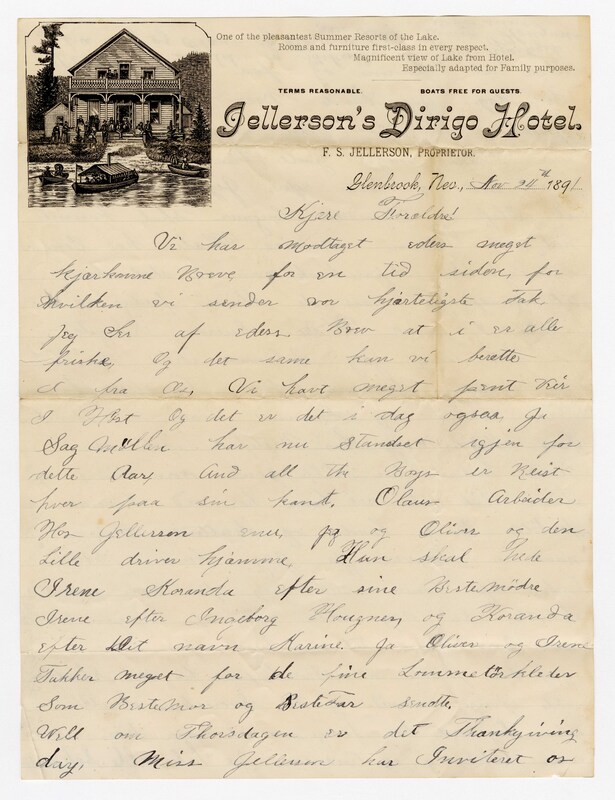 One of the pleasantest Summer Resorts of the Lake.
Rooms and furniture first-class in every respect.
Magnificent view of Lake from Hotel.
Especially adapted for Family purposes.
TERMS REASONABLE. BOATS FREE FOR GUESTS.
Jellerson's Dirigo Hotel.
F. S. JELLERSON, PROPRIETOR.
Glenbrook, Nev., Nov 24th 1891
Kjere Foraldre!
Vi har Modtaget eders meget
kjærkomne Breve, for en tid siden, for
hvilken vi sender vor hjærteligste Tak
Jeg Ser af eders Brev at i er alle
friske, Og det samme kan vi berette
fra Os, Vi have meget pent veir
I Høst Og det er det i dag ogsaa, Ja
Sag Møllen har nu Standset igjen for
dette Aar, And all the Boys er Reist
hver paa sin kant. Olaus Arbeider
Hos Jellerson enu, jeg og Oliver og den
Lille driver hjæmme, Hun skal hede
Irene Koranda efter sine Bestemödre
Irene efter Ingeborg Hougner, og Koranda
efter Dit navn Karine. Ja Oliver og Irene
Takker meget for de fine Lommetörkleder
Som BesteMor og BesteFar sendte,
Well om Thorsdagen er det Thankgiving
day, Miss Jellerson har Inviteret os